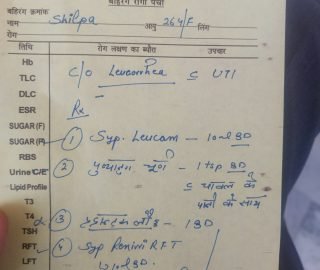 बहिरंग रोगी पर्चा
बहिरंग क्रमांक
नाम Shilpa आयु 26y/F लिंग
रोग
तिथि रोग लक्षण का ब्यौरा उपचार
Hb
C/o Leucorrhea c UTI
TLC
DLC
ESR
Rx
SUGAR (F)
① Syp. Leucam — 10ml BD
SUGAR (R)
RBS
② पुष्यानुग चूर्ण — 1 tsp BD
Urine C/E
c चावल के
Lipid Profile
पानी के साथ
T3
T4
③ — 1 BD
TSH
RFT
④ Syp R.F.T
LFT
BD.